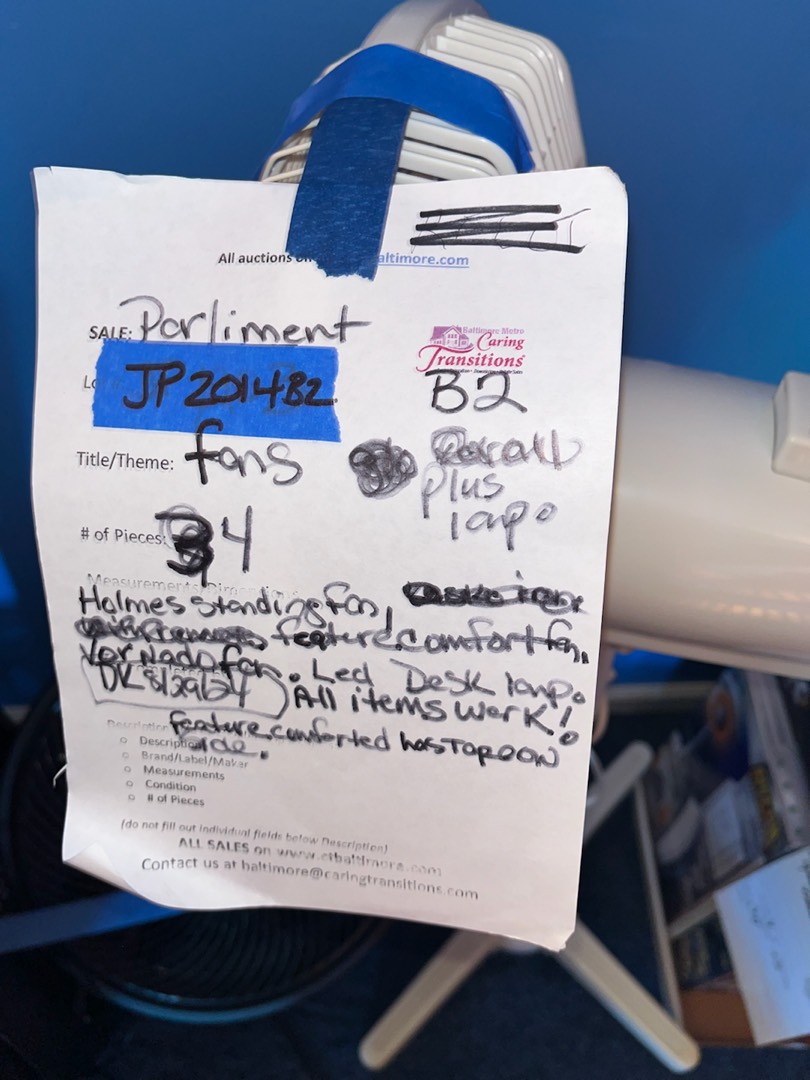 All auctions on altimore.com
SALE: Parliment
Baltimore Metro
Caring
Transitions
Lot #: JP201482
B2
Title/Theme: fans
plus
lamp
# of Pieces: 4
Measurements/Dimensions
Holmes standing fan,
feature comfort fan,
Vornado fan. Led Desk lamp.
DK 8/29/24 All items work!
feature comforted has TapeON
Side.
Description
o Description
o Brand/Label/Maker
o Measurements
o Condition
o # of Pieces
(do not fill out individual fields below Description)
ALL SALES on www.ctbaltimore.com
Contact us at baltimore@caringtransitions.com